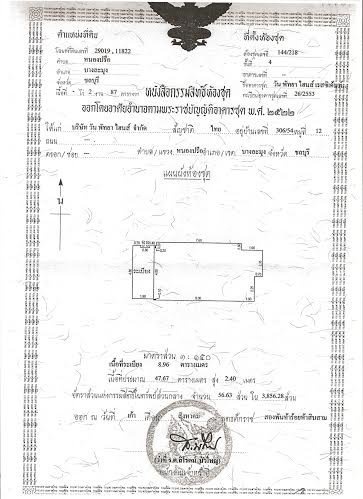 ตำแหน่งที่ดิน
ที่ตั้งห้องชุด
โฉนดที่ดินเลขที่ 29019 , 11822
ห้องชุดเลขที่ 144/218
ตำบล หนองปรือ
ชั้นที่ 4
อำเภอ บางละมุง
อาคารเลขที่ --
จังหวัด ชลบุรี
ชื่ออาคารชุด วัน พัทยา
เนื้อที่ - ไร่ 2 งาน 87 ตารางวา
ทะเบียนอาคารชุดเลขที่ 26/2553
หนังสือกรรมสิทธิ์ห้องชุด
ออกโดยอาศัยอำนาจตามพระราชบัญญัติอาคารชุด พ.ศ. ๒๕๒๒
ให้แก่ บริษัท วัน พัทยา โฮมส์ จำกัด สัญชาติ ไทย อยู่บ้านเลขที่ 306/54 หมู่ที่ 12
ถนน --
ตรอก / ซอย -- ตำบล / แขวง หนองปรือ อำเภอ / เขต บางละมุง จังหวัด ชลบุรี
แผนผังห้องชุด
น
7.60
ระเบียง
1.80
มาตราส่วน ๑ : ๑๕๐
เนื้อที่ระเบียง 8.96 ตารางเมตร
เนื้อที่ประมาณ 47.67 ตารางเมตร สูง 2.40 เมตร
อัตราส่วนแห่งกรรมสิทธิ์ในทรัพย์ส่วนกลาง จำนวน 56.63 ส่วน ใน 3,856.28 ส่วน
ออก ณ วันที่ เก้า เดือน สิงหาคม พุทธศักราช สองพันห้าร้อยห้าสิบสาม